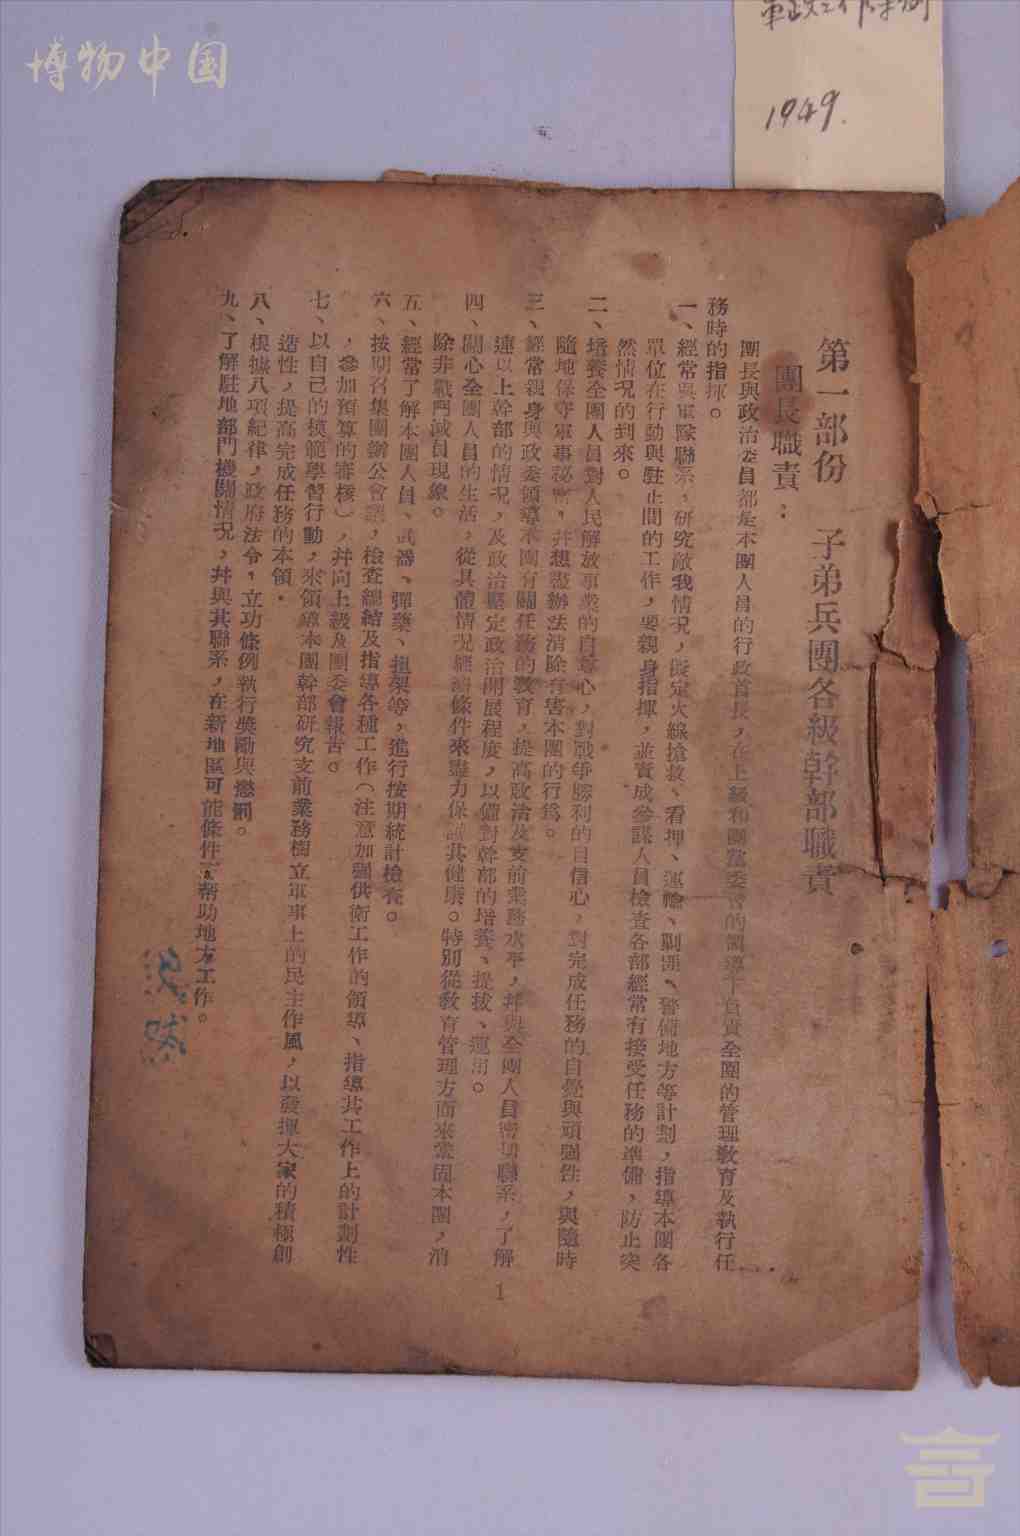 博物中国
1949.
第一部份　子弟兵團各級幹部職責
團長職責：
團長與政治委員都是本團人員的行政首長，在上級和團黨委會的領導下負責全團的管理教育及執行任
務時的指揮。
一、經常與軍隊聯系，研究敵我情况，擬定火線搶救、看押、運輸、剿匪、警備地方等計劃，指導本團各
單位在行動與駐止間的工作，要親身指揮，並責成參謀人員檢查各部經常有接受任務的準備，防止突
然情况的到來。
二、培養全團人員對人民解放事業的自尊心，對戰爭勝利的自信心，對完成任務的自覺與頑强性，與隨時
隨地保守軍事秘密，幷想盡辦法消除有害本團的行爲。
三、經常親身與政委領導本團有關任務的教育，提高政治及支前業務水平，幷與全團人員密切聯系，了解
連以上幹部的情况，及政治堅定政治開展程度，以備對幹部的培養、提拔、運用。
四、關心全團人員的生活，從具體情况經濟條件來盡力保証其健康。特别從教育管理方面來鞏固本團，消
除非戰鬥減員現象。
五、經常了解本團人員、武器、彈藥、担架等，進行按期統計檢查。
六、按期召集團辦公會議，檢查總結及指導各種工作（注意加强供衛工作的領導、指導其工作上的計劃性
，參加預算的審核），幷向上級及團委會報告。
七、以自己的模範學習行動，來領導本團幹部研究支前業務樹立軍事上的民主作風，以發揮大家的積極創
造性，提高完成任務的本領．
八、根據八項紀律，政府法令，立功條例執行奬勵與懲罰。
九、了解駐地部門機關情况，幷與其聯系，在新地區可能條件下帮助地方工作。
1